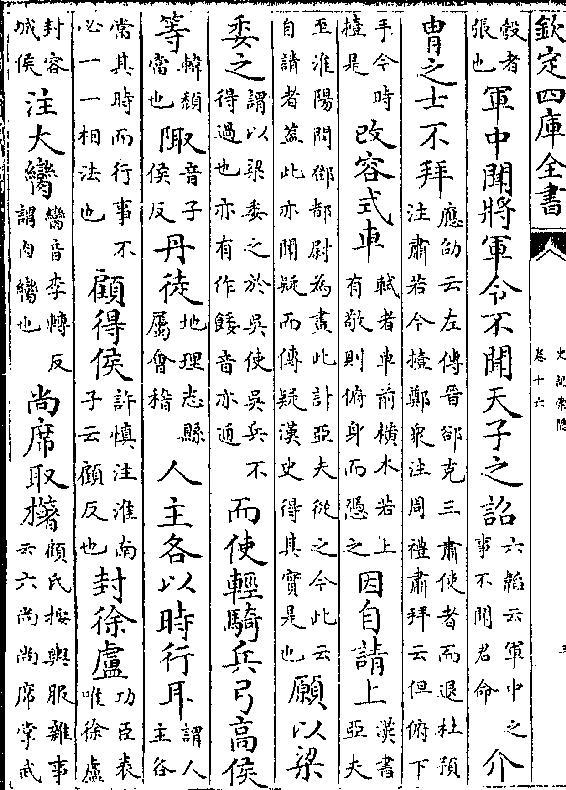 欽定四庫全書
史記索隱
卷十六
三
彀者張也軍中聞將軍令不聞天子之詔六韜云軍中之事不聞君命介
胄之士不拜應劭云左傳晉郤克三肅使者而退杜預注肅若今撎鄭衆注周禮肅拜云但俯下
手今時撎是改容式車軾者車前橫木若上有敬則俯身而憑之因自請上漢書亞夫
至淮陽問鄧都尉為畫此計亞夫從之今此云自請者蓋此亦聞疑而傳疑漢史得其實是也願以梁
委之謂以梁委之於吳使吳兵不得過也亦有作餧音亦通而使輕騎兵弓高侯
等韓頹當也陬音子侯反丹徒地理志縣屬會稽人主各以時行耳謂人主各
當其時而行事不必一一相法也顧得侯許慎注淮南子云顧反也封徐盧功臣表唯徐盧
封容城侯注大臠臠音李轉反謂肉臠也尚席取櫡顧氏按輿服雜事云六尚尚席掌武